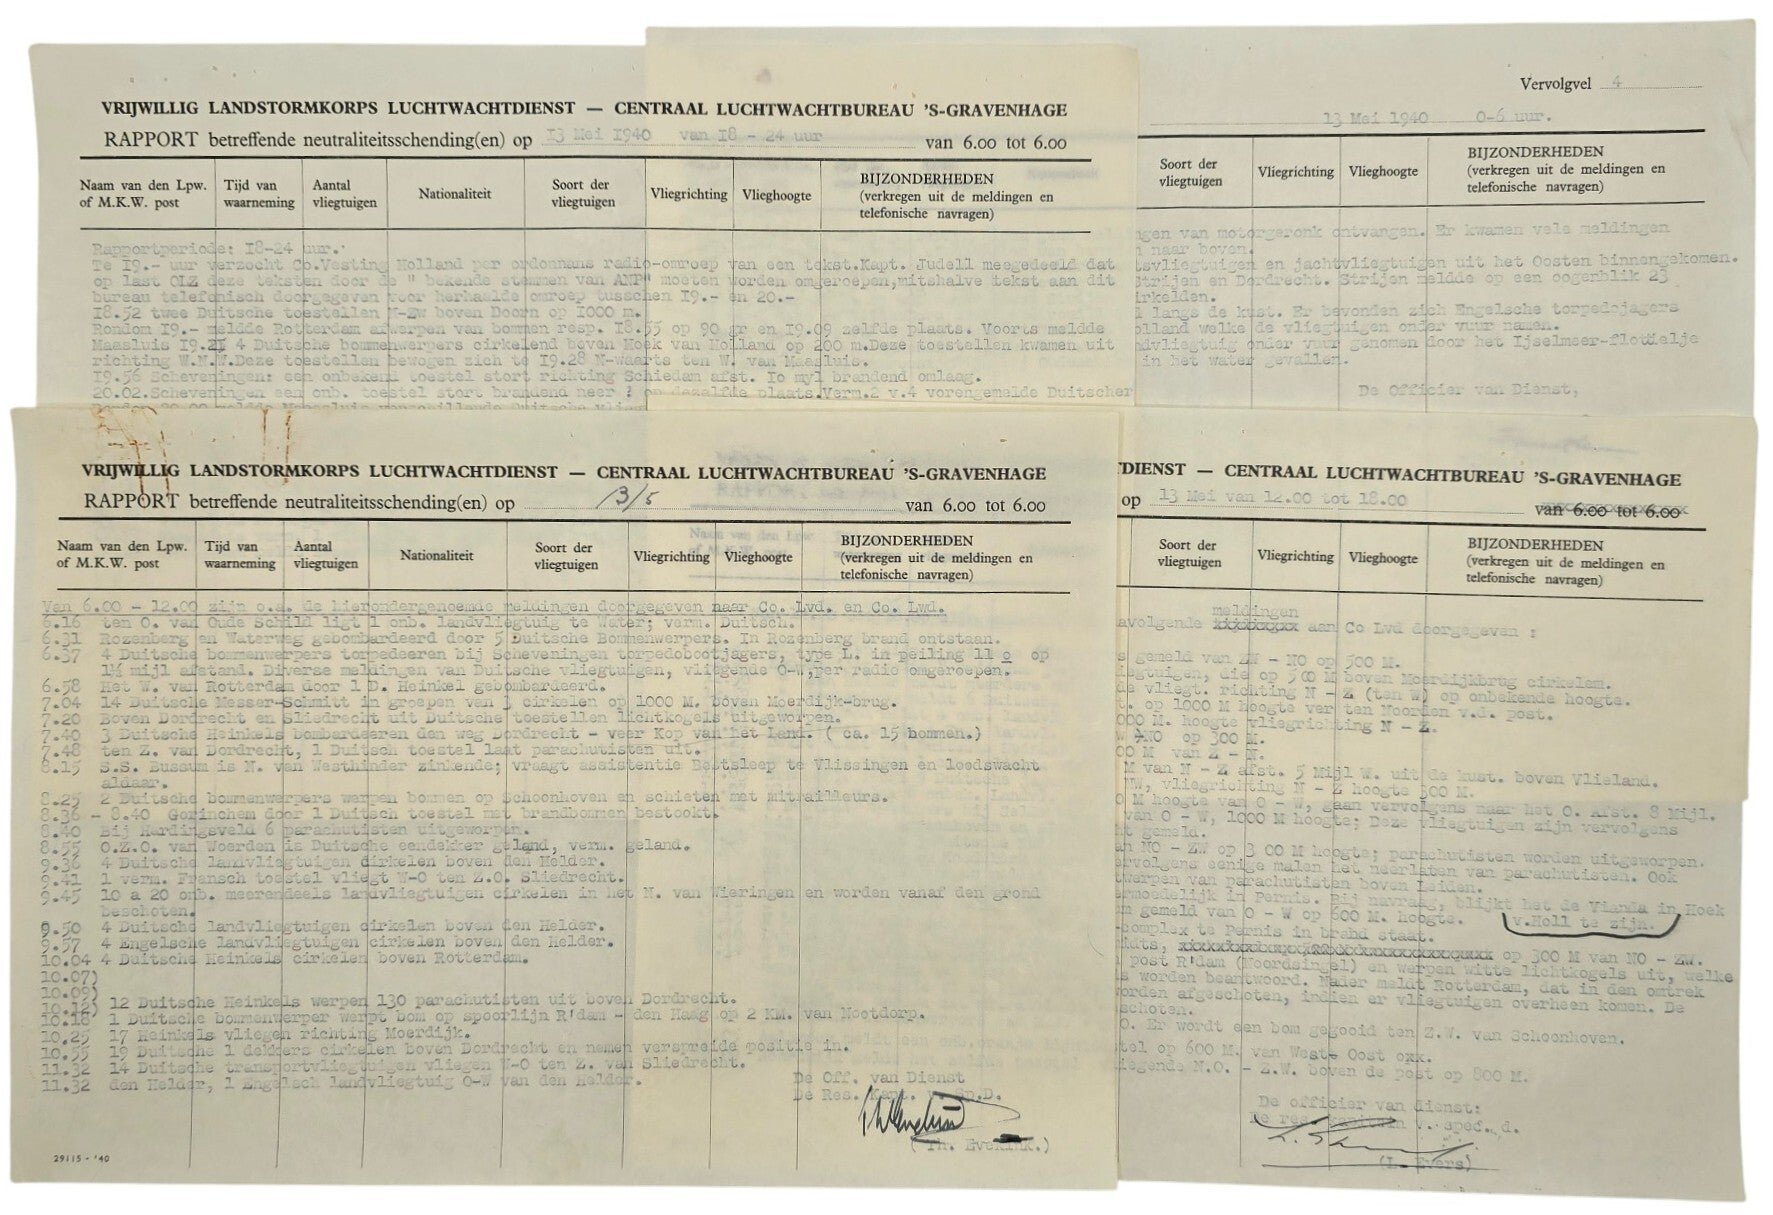 VRIJWILLIG LANDSTORMKORPS LUCHTWACHTDIENST — CENTRAAL LUCHTWACHTBUREAU 'S-GRAVENHAGE
RAPPORT betreffende neutraliteitsschending(en) op 13 Mei 1940 van 18 - 24 uur van 6.00 tot 6.00
Naam van den Lpw. of M.K.W. post
Tijd van waarneming
Aantal vliegtuigen
Nationaliteit
Soort der vliegtuigen
Vliegrichting
Vlieghoogte
BIJZONDERHEDEN
(verkregen uit de meldingen en
telefonische navragen)
Rapportperiode: 18-24 uur.
Te 19.- uur verzocht Co.Vesting Holland per ordonnans radio-omroep van een tekst.Kapt. Judell meegedeeld dat
op last OLZ deze teksten door de " bekende stemmen van ANP" moeten worden omgeroepen,mitshalve tekst aan dit
bureau telefonisch doorgegeven voor herhaalde omroep tusschen 19.- en 20.-
18.52 twee Duitsche toestellen N-ZW boven Doorn op 1000 m.
Rondom 19.- meldde Rotterdam afwerpen van bommen resp. 18.55 op 90 gr en 19.09 zelfde plaats. Voorts meldde
Maasluis 19.21 4 Duitsche bommenwerpers cirkelend boven Hoek van Holland op 200 m.Deze toestellen kwamen uit
richting W.N.W.Deze toestellen bewogen zich te 19.28 N-waarts ten W. van Maasluis.
19.56 Scheveningen: een onbekend toestel stort richting Schiedam afst. 10 myl brandend omlaag.
20.02.Scheveningen een onb. toestel stort brandend neer : op dezelfde plaats.Verm.2 v.4 vorengemelde Duitscher
Vervolgvel 4
13 Mei 1940 0-6 uur.
Soort der vliegtuigen
Vliegrichting
Vlieghoogte
BIJZONDERHEDEN
(verkregen uit de meldingen en
telefonische navragen)
ngen van motorgeronk ontvangen. Er kwamen vele meldingen
naar boven.
tsvliegtuigen en jachtvliegtuigen uit het Oosten binnengekomen.
Strijen en Dordrecht. Strijen meldde op een oogenblik 23
irkelden.
l langs de kust. Er bevonden zich Engelsche torpedojagers
olland welke de vliegtuigen onder vuur namen.
ndvliegtuig onder vuur genomen door het Ijselmeer-flottielje
in het water gevallen.
De Officier van Dienst,
VRIJWILLIG LANDSTORMKORPS LUCHTWACHTDIENST — CENTRAAL LUCHTWACHTBUREAU 'S-GRAVENHAGE
RAPPORT betreffende neutraliteitsschending(en) op 13/5 van 6.00 tot 6.00
Naam van den Lpw. of M.K.W. post
Tijd van waarneming
Aantal vliegtuigen
Nationaliteit
Soort der vliegtuigen
Vliegrichting
Vlieghoogte
BIJZONDERHEDEN
(verkregen uit de meldingen en
telefonische navragen)
Van 6.00 - 12.00 zijn o.a. de hierondergenoemde meldingen doorgegeven naar Co. Lvd. en Co. Lwd.
6.16 ten O. van Oude Schild ligt 1 onb. landvliegtuig te Water; verm. Duitsch.
6.31 Rozenberg en Waterweg gebombardeerd door 5 Duitsche Bommenwerpers. In Rozenberg brand ontstaan.
6.37 4 Duitsche bommenwerpers torpedeeren bij Scheveningen torpedobootjagers, type L. in peiling 11 o op
1½ mijl afstand. Diverse meldingen van Duitsche vliegtuigen, vliegende O-W,per radio omgeroepen.
6.58 Het W. van Rotterdam door 1 D. Heinkel gebombardeerd.
7.04 14 Duitsche Messer-Schmitt in groepen van 3 cirkelen op 1000 M. boven Moerdijk-brug.
7.20 Boven Dordrecht en Sliedrecht uit Duitsche toestellen lichtkogels uitgeworpen.
7.40 3 Duitsche Heinkels bombardeeren den weg Dordrecht - veer Kop van het Land. ( ca. 15 bommen.)
7.48 ten Z. van Dordrecht, 1 Duitsch toestel laat parachutisten uit.
8.15 S.S. Bussum is N. van Westhinder zinkende; vraagt assistentie Bootsleep te Vlissingen en loodswacht
aldaar.
8.25 2 Duitsche bommenwerpers werpen bommen op Schoonhoven en schieten met mitrailleurs.
8.36 - 8.40 Gorinchem door 1 Duitsch toestel met brandbommen bestookt.
8.40 Bij Hardingsveld 6 parachutisten uitgeworpen.
8.55 O.Z.O. van Woerden is Duitsche eendekker geland, verm. geland.
9.36 4 Duitsche landvliegtuigen cirkelen boven den Helder.
9.41 1 verm. Fransch toestel vliegt W-O ten Z.O. Sliedrecht.
9.45 10 a 20 onb. meerendeels landvliegtuigen cirkelen in het N. van Wieringen en worden vanaf den grond
beschoten.
9.50 4 Duitsche landvliegtuigen cirkelen boven den Helder.
9.57 4 Engelsche landvliegtuigen cirkelen boven den Helder.
10.04 4 Duitsche Heinkels cirkelen boven Rotterdam.
10.07)
10.09)
10.12) 12 Duitsche Heinkels werpen 130 parachutisten uit boven Dordrecht.
10.16 1 Duitsche bommenwerper werpt bom op spoorlijn R'dam - den Haag op 2 KM. van Nootdorp.
10.25 17 Heinkels vliegen richting Moerdijk.
10.55 19 Duitsche 1 dekkers cirkelen boven Dordrecht en nemen verspreide positie in.
11.32 14 Duitsche transportvliegtuigen vliegen W-O ten Z. van Sliedrecht.
11.32 den Helder, 1 Engelsch landvliegtuig O-W van den Helder.
De Off. van Dienst
De Res. Kapt. v. Sp.D.
(Th. Evekink.)
29115 - '40
TDIENST — CENTRAAL LUCHTWACHTBUREAU 'S-GRAVENHAGE
op 13 Mei van 12.00 tot 18.00 van 6.00 tot 6.00
Soort der vliegtuigen
Vliegrichting
Vlieghoogte
BIJZONDERHEDEN
(verkregen uit de meldingen en
telefonische navragen)
meldingen
avolgende xxxxxxxxx aan Co Lvd doorgegeven :
s gemeld van ZW - NO op 500 M.
iegtuigen, die op 500 M boven Moerdijkbrug cirkelem.
de vliegt. richting N - Z (ten W) op onbekende hoogte.
t. op 1000 M hoogte ver ten Noorden v.d. post.
000 M. hoogte vliegrichting N - Z.
NO op 300 M.
00 M van Z - N.
M van N - Z afst. 5 Mijl W. uit de kust. boven Vlieland.
NW, vliegrichting N - Z hoogte 300 M.
0 M hoogte van O - W, gaan vervolgens naar het O. Afst. 8 Mijl.
van O - W, 1000 M hoogte; Deze vliegtuigen zijn vervolgens
ht gemeld.
an NO - ZW op 3 00 M hoogte; parachutisten worden uitgeworpen.
ervolgens eenige malen het neerlaten van parachutisten. Ook
twerpen van parachutisten boven Leiden.
ermoedelijk in Pernis. Bij navraag, blijkt het de Vianda in Hoek
m gemeld van O - W op 600 M. hoogte. v.Holl te zijn.
-complex te Pernis in brabd staat.
idts, xxxxxxxxxxxxxxxxxxxxxxxxxxxxxxxxx op 300 M van NO - ZW.
post R'dam (Noordsingel) en werpen witte lichtkogels uit, welke
s worden beantwoord. Nader meldt Rotterdam, dat in den omtrek
orden afgeschoten, indien er vliegtuigen overheen komen. De
schoten.
O. Er wordt een bom gegooid ten Z.W. van Schoonhoven.
tel op 600 M. van West- Oost oxx.
iegende N.O. - Z.W. boven de post op 800 M.
De officier van dienst:
De res. kapitein v. spec. d.
(L. Evers)